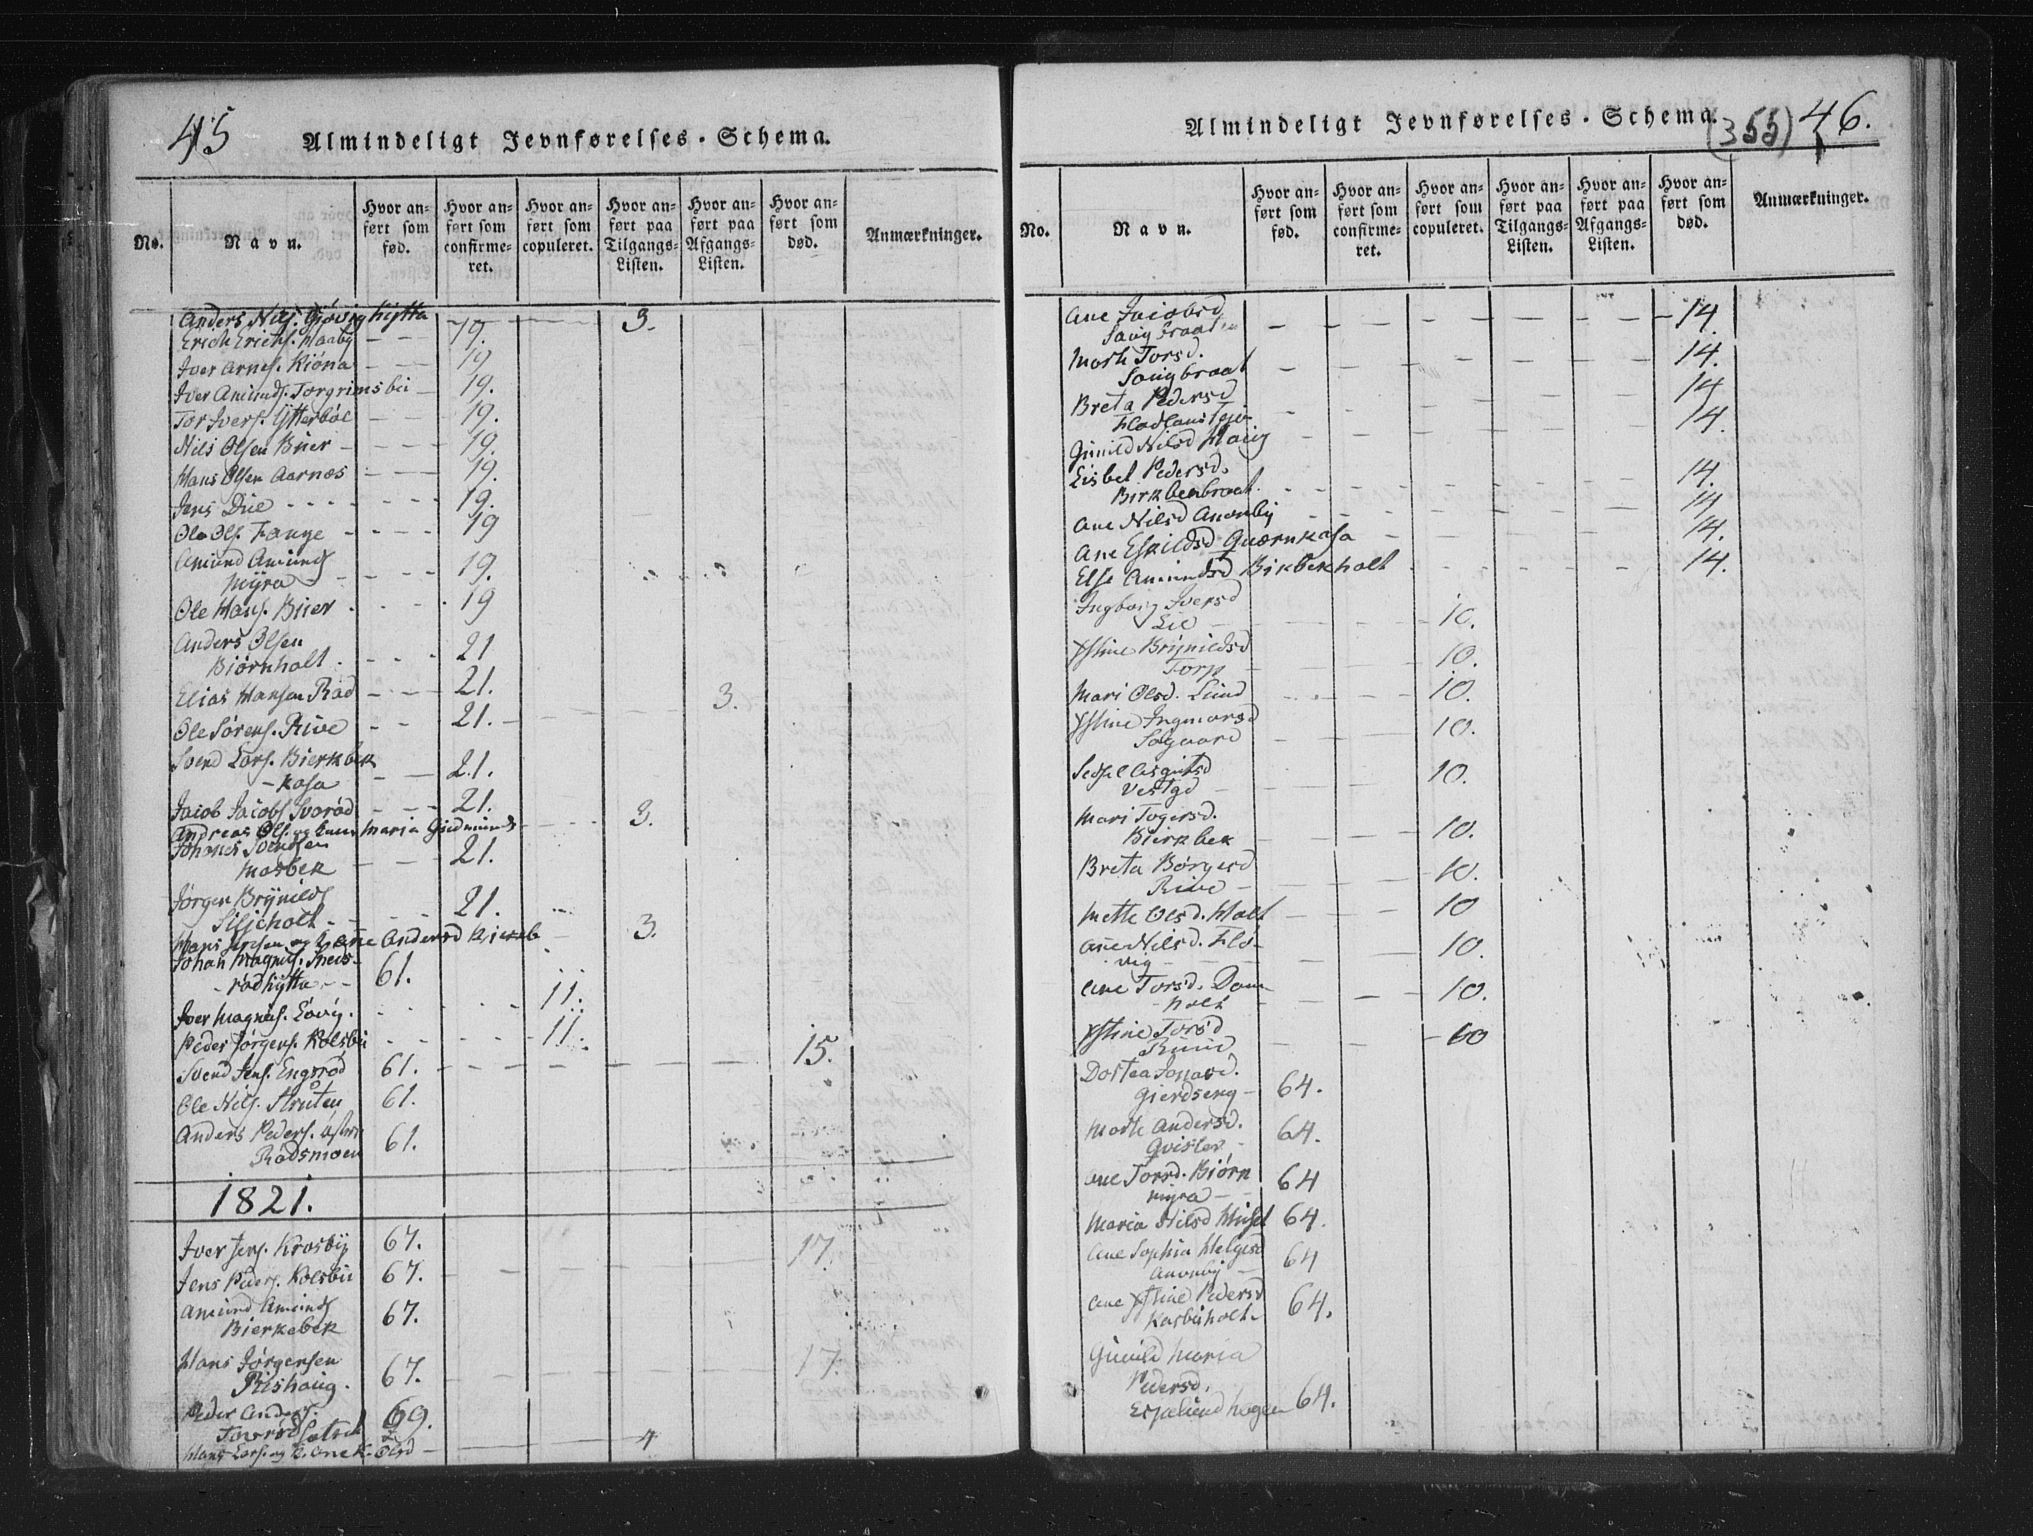 45
Almindeligt Jevnførelses-Schema.
No.
Navn.
Hvor anført som fød.
Hvor anført som confirmeret.
Hvor anført som copuleret.
Hvor anført paa Tilgangs-Listen.
Hvor anført paa Afgangs-Listen.
Hvor anført som død.
Anmærkninger.
Anders Nils. Giøvighytta 3.
Erich Erichs. Haaby 19.
Iver Arnes. Kiøna 19
Iver Amunds. Torgrimsbü 19.
Tor Ivers. Ytterbøl 19.
Nils Olsen Buer 19.
Hans Olsen Aarnæs 19.
Jens Due 19.
Ole Ols. Fange 19
Amund Amunds
Myra 19.
Ole Hans. Buer 19
Anders Olsen
Biørnholt 21
Elias Hansen Rød 21. 3.
Ole Sørens. Rüve 21.
Svend Lars. Bierkbek
-kasa 21.
Jacob Jacobs 21.
Andreas Ols. og Maria Gudmunds 3.
Johanes Svendsen
Mosbek 21.
Jørgen Brÿnilds
Siljeholt 21.
Hans Jensen og Ane Andersd 3.
Johan Magnus.
-rødhytta 61.
Iver Magnus. 11.
Peder Jørgens. Kolsbü 11. 15.
Svend Jens. Engrød 61.
Ole Nils. Struten 61.
Anders Peders.
Rødsmoen 61.
1821.
Iver Jens. Krosbÿ 67. 17.
Jens Peders. Kolsbü 67.
Amund Amunds
Bierkebek 67.
Hans Jørgensen
Rishaug. 67. 17.
Peder Anders. 69.
Hans Lars. og Olsd 4
Almindeligt Jevnførelses-Schema.
(355) 46.
No.
Navn.
Hvor anført som fød.
Hvor anført som confirmeret.
Hvor anført som copuleret.
Hvor anført paa Tilgangs-Listen.
Hvor anført paa Afgangs-Listen.
Hvor anført som død.
Anmærkninger.
Ane Jacobsd
14.
Marth Torsd.
Saugbraat 14.
Breta Pedersd 14
Gunild Nilsd Haug 14.
Lisbet Pedersd.
Birkbenbraat. 14.
Ane Nilsd Anonby 14
Ane Eskildsd Quærnkasa 14.
Else Amundsd Birbekholt 14.
Ingborg Iversd
Lie 10.
Xstine Brÿnildsd
Torp 10.
Mari Olsd. Lund 10.
Xstine Ingmarsd
Solgaard 10.
Sidsel
Vestgd 10.
Mari Togersd.
Bierkbek 10.
Breta Børgersd
Rüve 10.
Mette Olsd. Holt 10
Ane Nilsd. Flø-
vig 10.
Ane Torsd. Dam
-holt 10.
Xstine Torsd
Ruud 10
Dortea
Gierdseng 64.
Marth Andersd.
Qvisler 64.
Ane Torsd. Biørn
myra 64
Maria Nilsd Husel 64.
Ane Sophia Helgesd
Anonby 64
Ane Xstine Pedersd
Kasbüholt. 64.
Gunild Maria
Pedersd.
64.